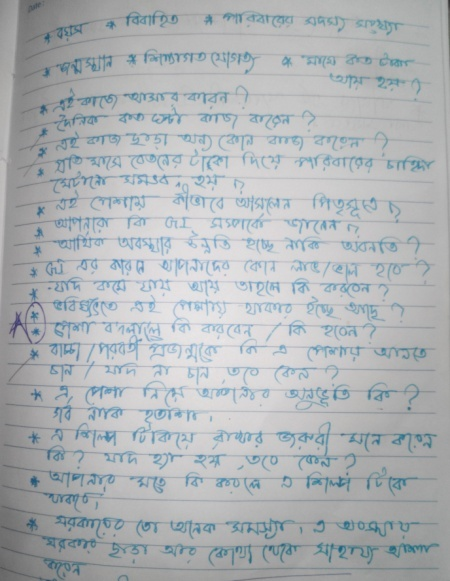 * বয়স * বিবাহিত * পরিবারের সদস্য সংখ্যা
* জন্মস্থান * শিক্ষাগত যোগ্যতা * মাসে কত টাকা
আয় হয় ?
* এই কাজে আসার কারন ?
* দৈনিক কত ঘন্টা কাজ করেন ?
* এই কাজ ছাড়া অন্য কোন কাজ করেন ?
* প্রতি মাসে বেতনের টাকা দিয়ে পরিবারের চাহিদা
মেটানো সম্ভব হয় ?
* এই পেশায় কীভাবে আসলেন পিতৃসূত্রে ?
* আপনারা কি GI সম্পর্কে জানেন ?
* আর্থিক অবস্থার উন্নতি হচ্ছে নাকি অবনতি ?
* GI এর কারনে আপনাদের কোন লাভ/ভাল হবে ?
* যদি কমে যায় আয় তাহলে কি করবেন ?
* ভবিষ্যতে এই পেশায় থাকার ইচ্ছে আছে ?
* পেশা বদলালে কি করবেন / কি হবেন ?
* বাচ্চা / পরবর্তী প্রজন্মকে কি এ পেশায় আনতে
চান / যদি না চান তবে কেন ?
* এ পেশা নিয়ে আপনার অনুভূতি কি ?
গর্ব নাকি হতাশা ।
* এ শিল্পে টিকিয়ে রাখার জরুরী মনে করেন
কি ? যদি হ্যা হয় তবে কেন ?
* আপনার মতে কি করলে এ শিল্প টিকে
থাকবে ।
* সরকারের তো অনেক সমস্যা । এ অবস্থায়
সরকার ছাড়া আর কোথা থেকে সাহায্য আশা
করেন